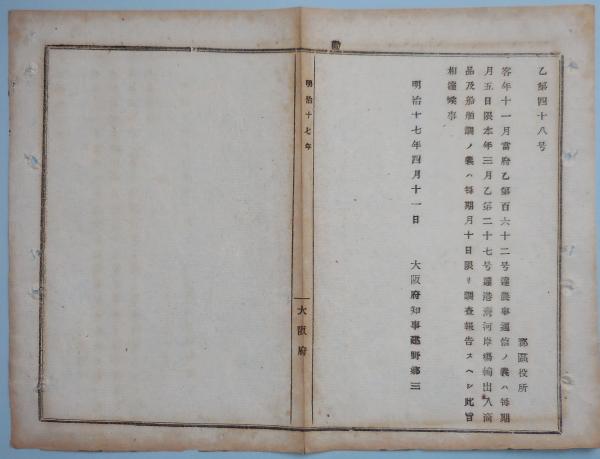 乙第四十八号
郡區役所
客年十一月當府乙第百六十二号達農事通信ノ義ハ每期
月五日限本年三月乙第二十七号達港湾河岸場輸出入商
品及船舶調ノ義ハ每期月十日限リ調査報告スヘシ此旨
相達候事
明治十七年四月十一日
大阪府知事建野郷三
明治十七年
大阪府